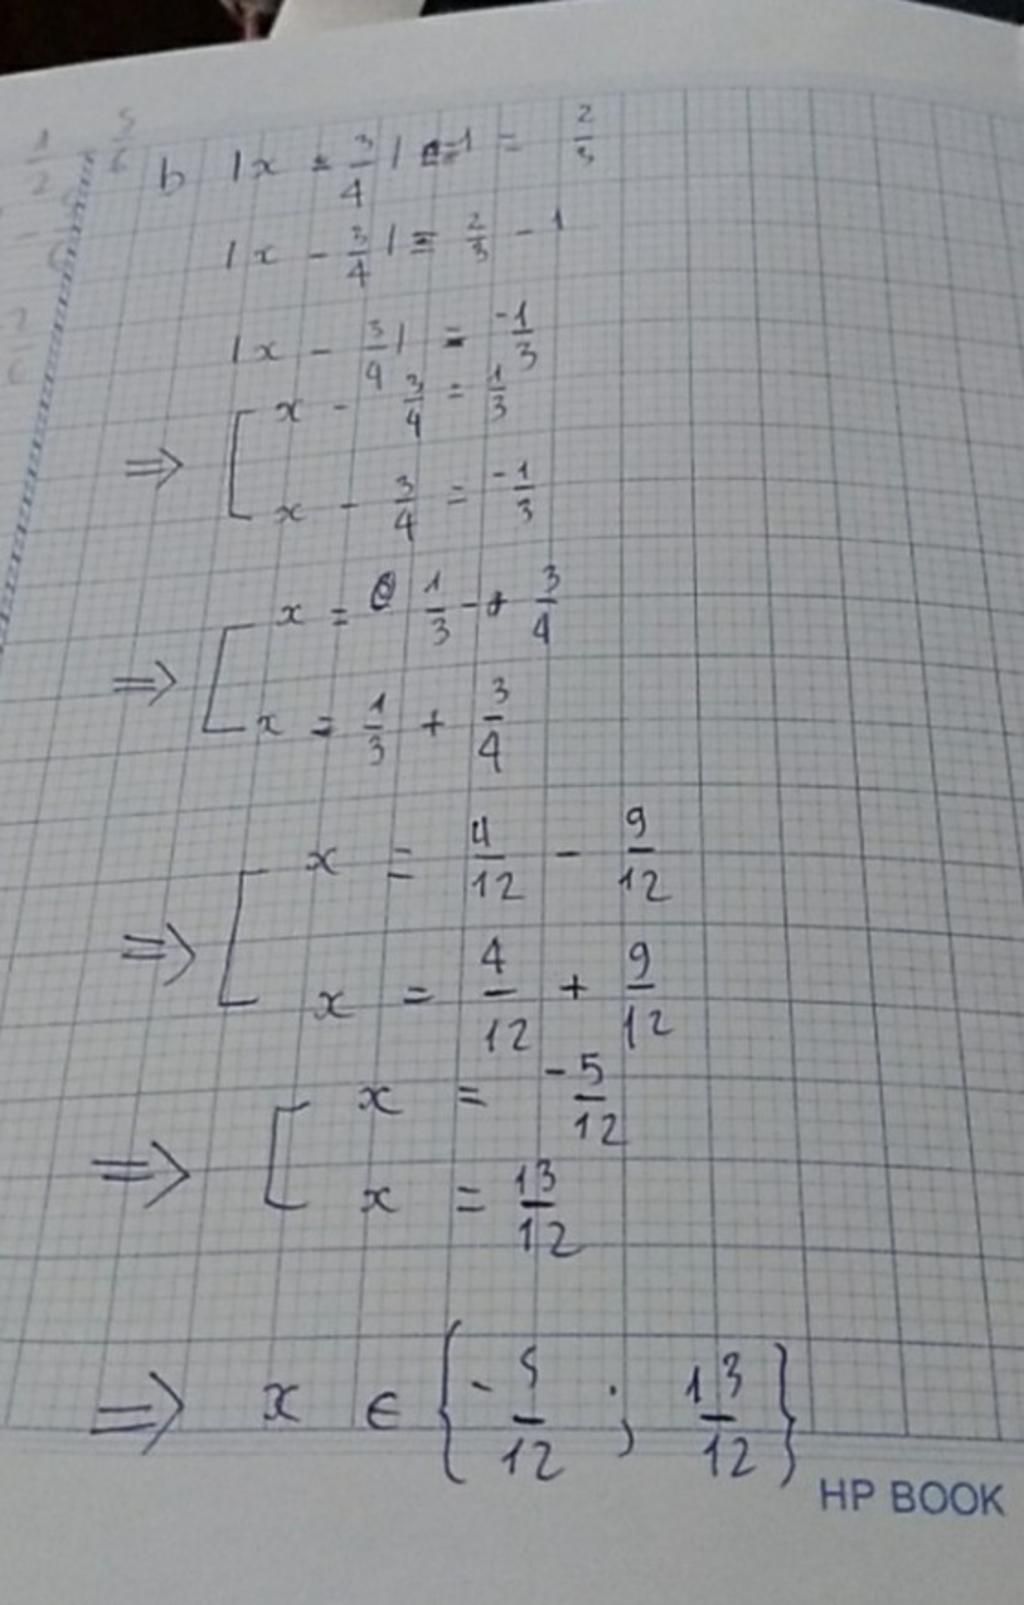 b |x - 3/4| = 1 = 2/3
|x - 3/4| = 2/3 - 1
|x - 3/4| = -1/3
⇒ [ x - 3/4 = 1/3
x - 3/4 = -1/3
⇒ [ x = 1/3 + 3/4
x = 1/3 + 3/4
⇒ [ x = 4/12 - 9/12
x = 4/12 + 9/12
⇒ [ x = -5/12
x = 13/12
⇒ x ∈ {-5/12 ; 13/12}
HP BOOK